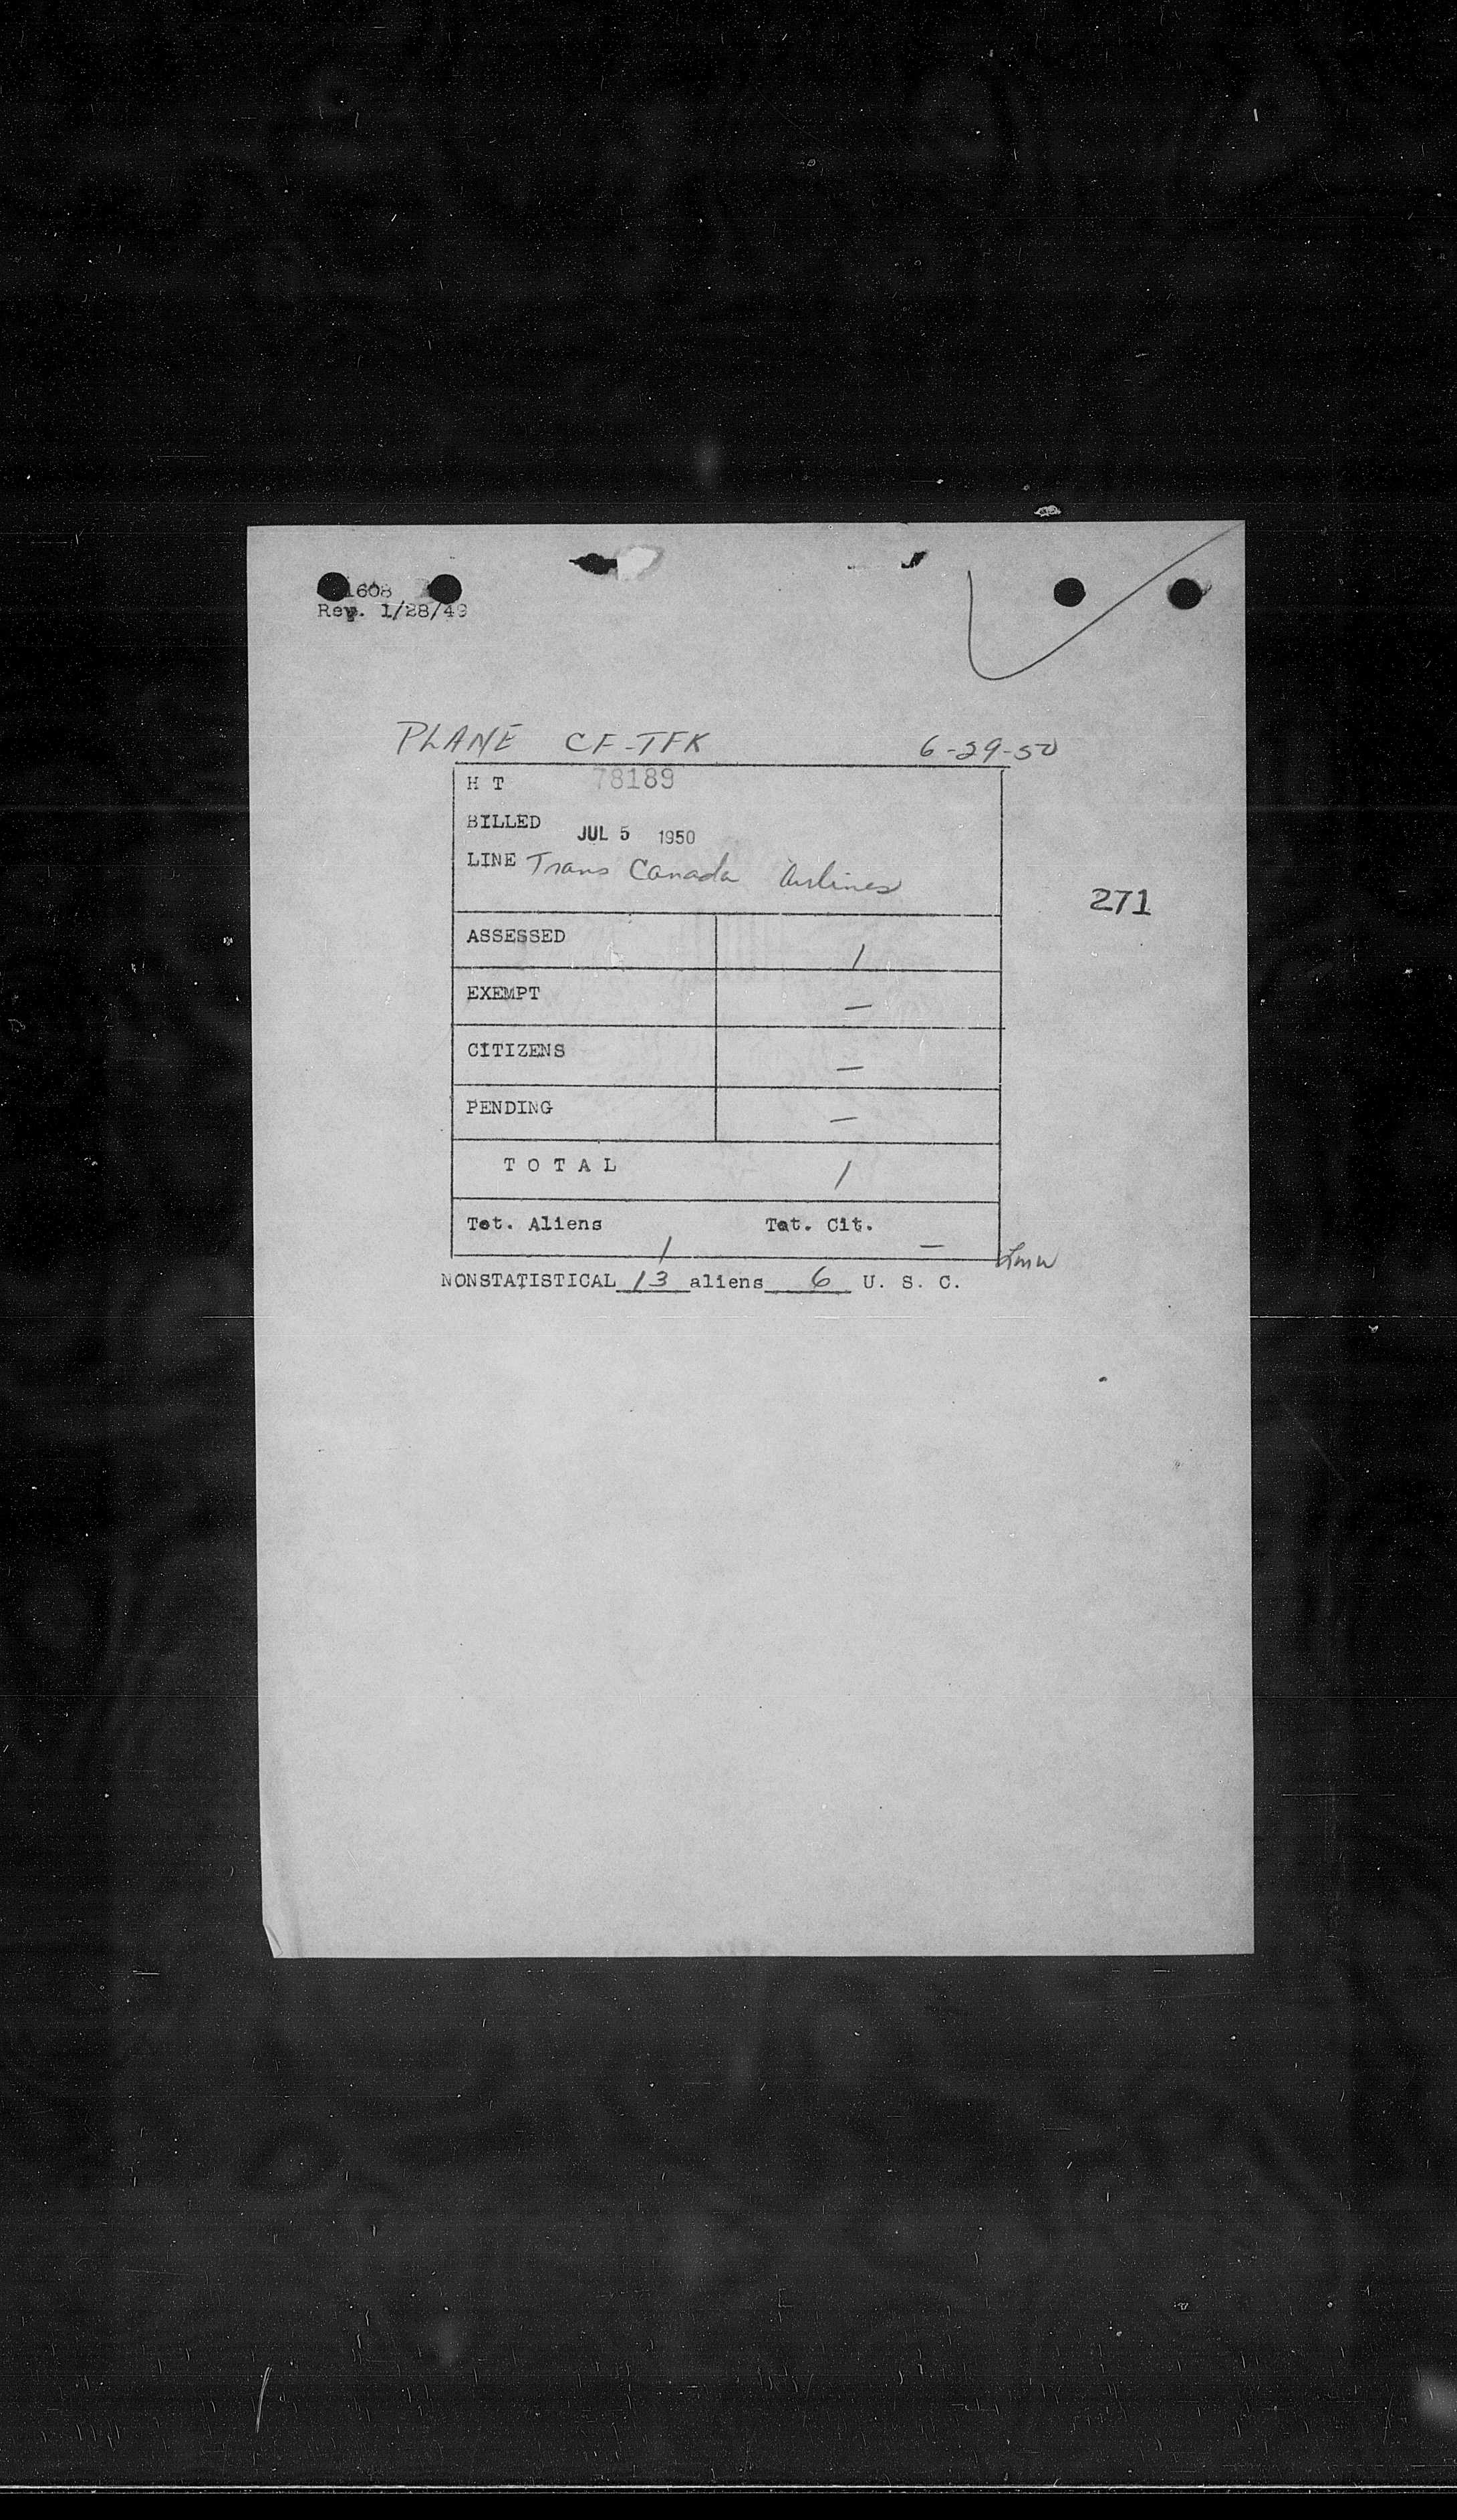 1608
Rev. 1/28/49
PLANE CF-TFK 6-29-50
H T 78189
BILLED JUL 5 1950
LINE Trans Canada Airlines
271
ASSESSED 1
EXEMPT —
CITIZENS —
PENDING —
T O T A L 1
Tot. Aliens 1 Tot. Cit. —
NONSTATISTICAL 13 aliens 6 U. S. C.